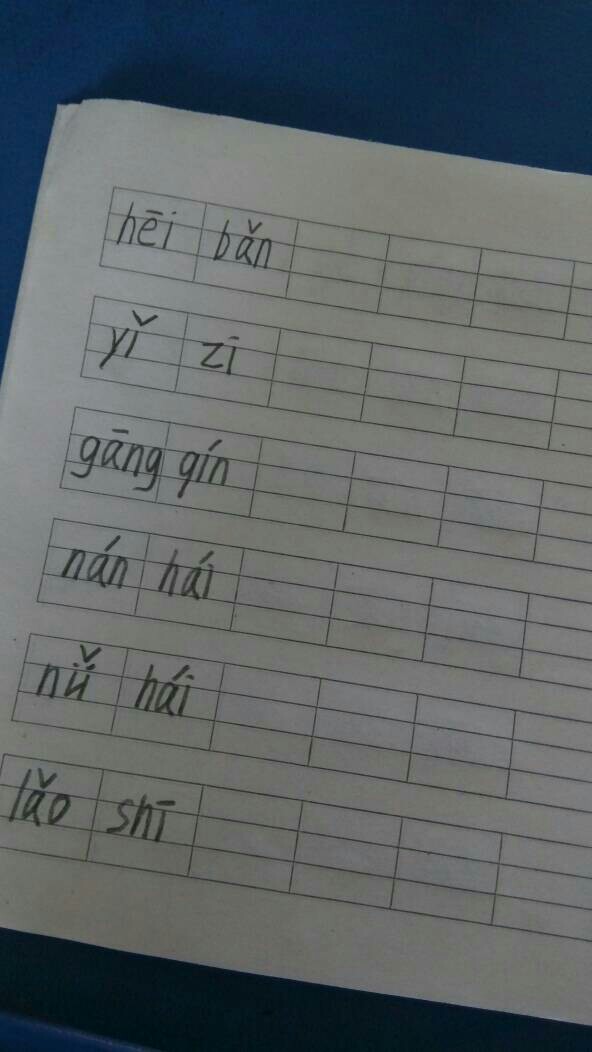 hēi bǎn
yǐ zi
gāng qín
nán hái
nǚ hái
lǎo shī